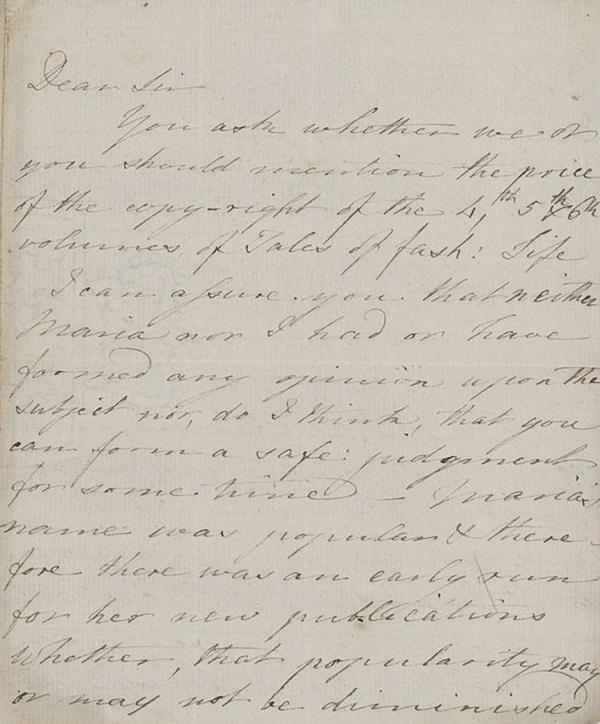 Dear Sir
You ask whether we or
you should mention the price
of the copy-right of the 4,th 5th & 6th
volumes of Tales of fash: Life
I can assure you that neither
Maria nor I had or have
formed any opinion upon the
subject nor, do I think, that you
can form a safe judgment
for some time – Maria's
name was popular & there-
fore there was an early run
for her new publications
whether, that popularity may
or may not be diminished